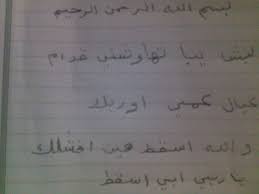 بسم الله الرحمن الرحيم
ليش يبا تهاوشني قدام
عيال عمي اوربك
والله اسقط مين افشلك
ياربي ابي اسقط